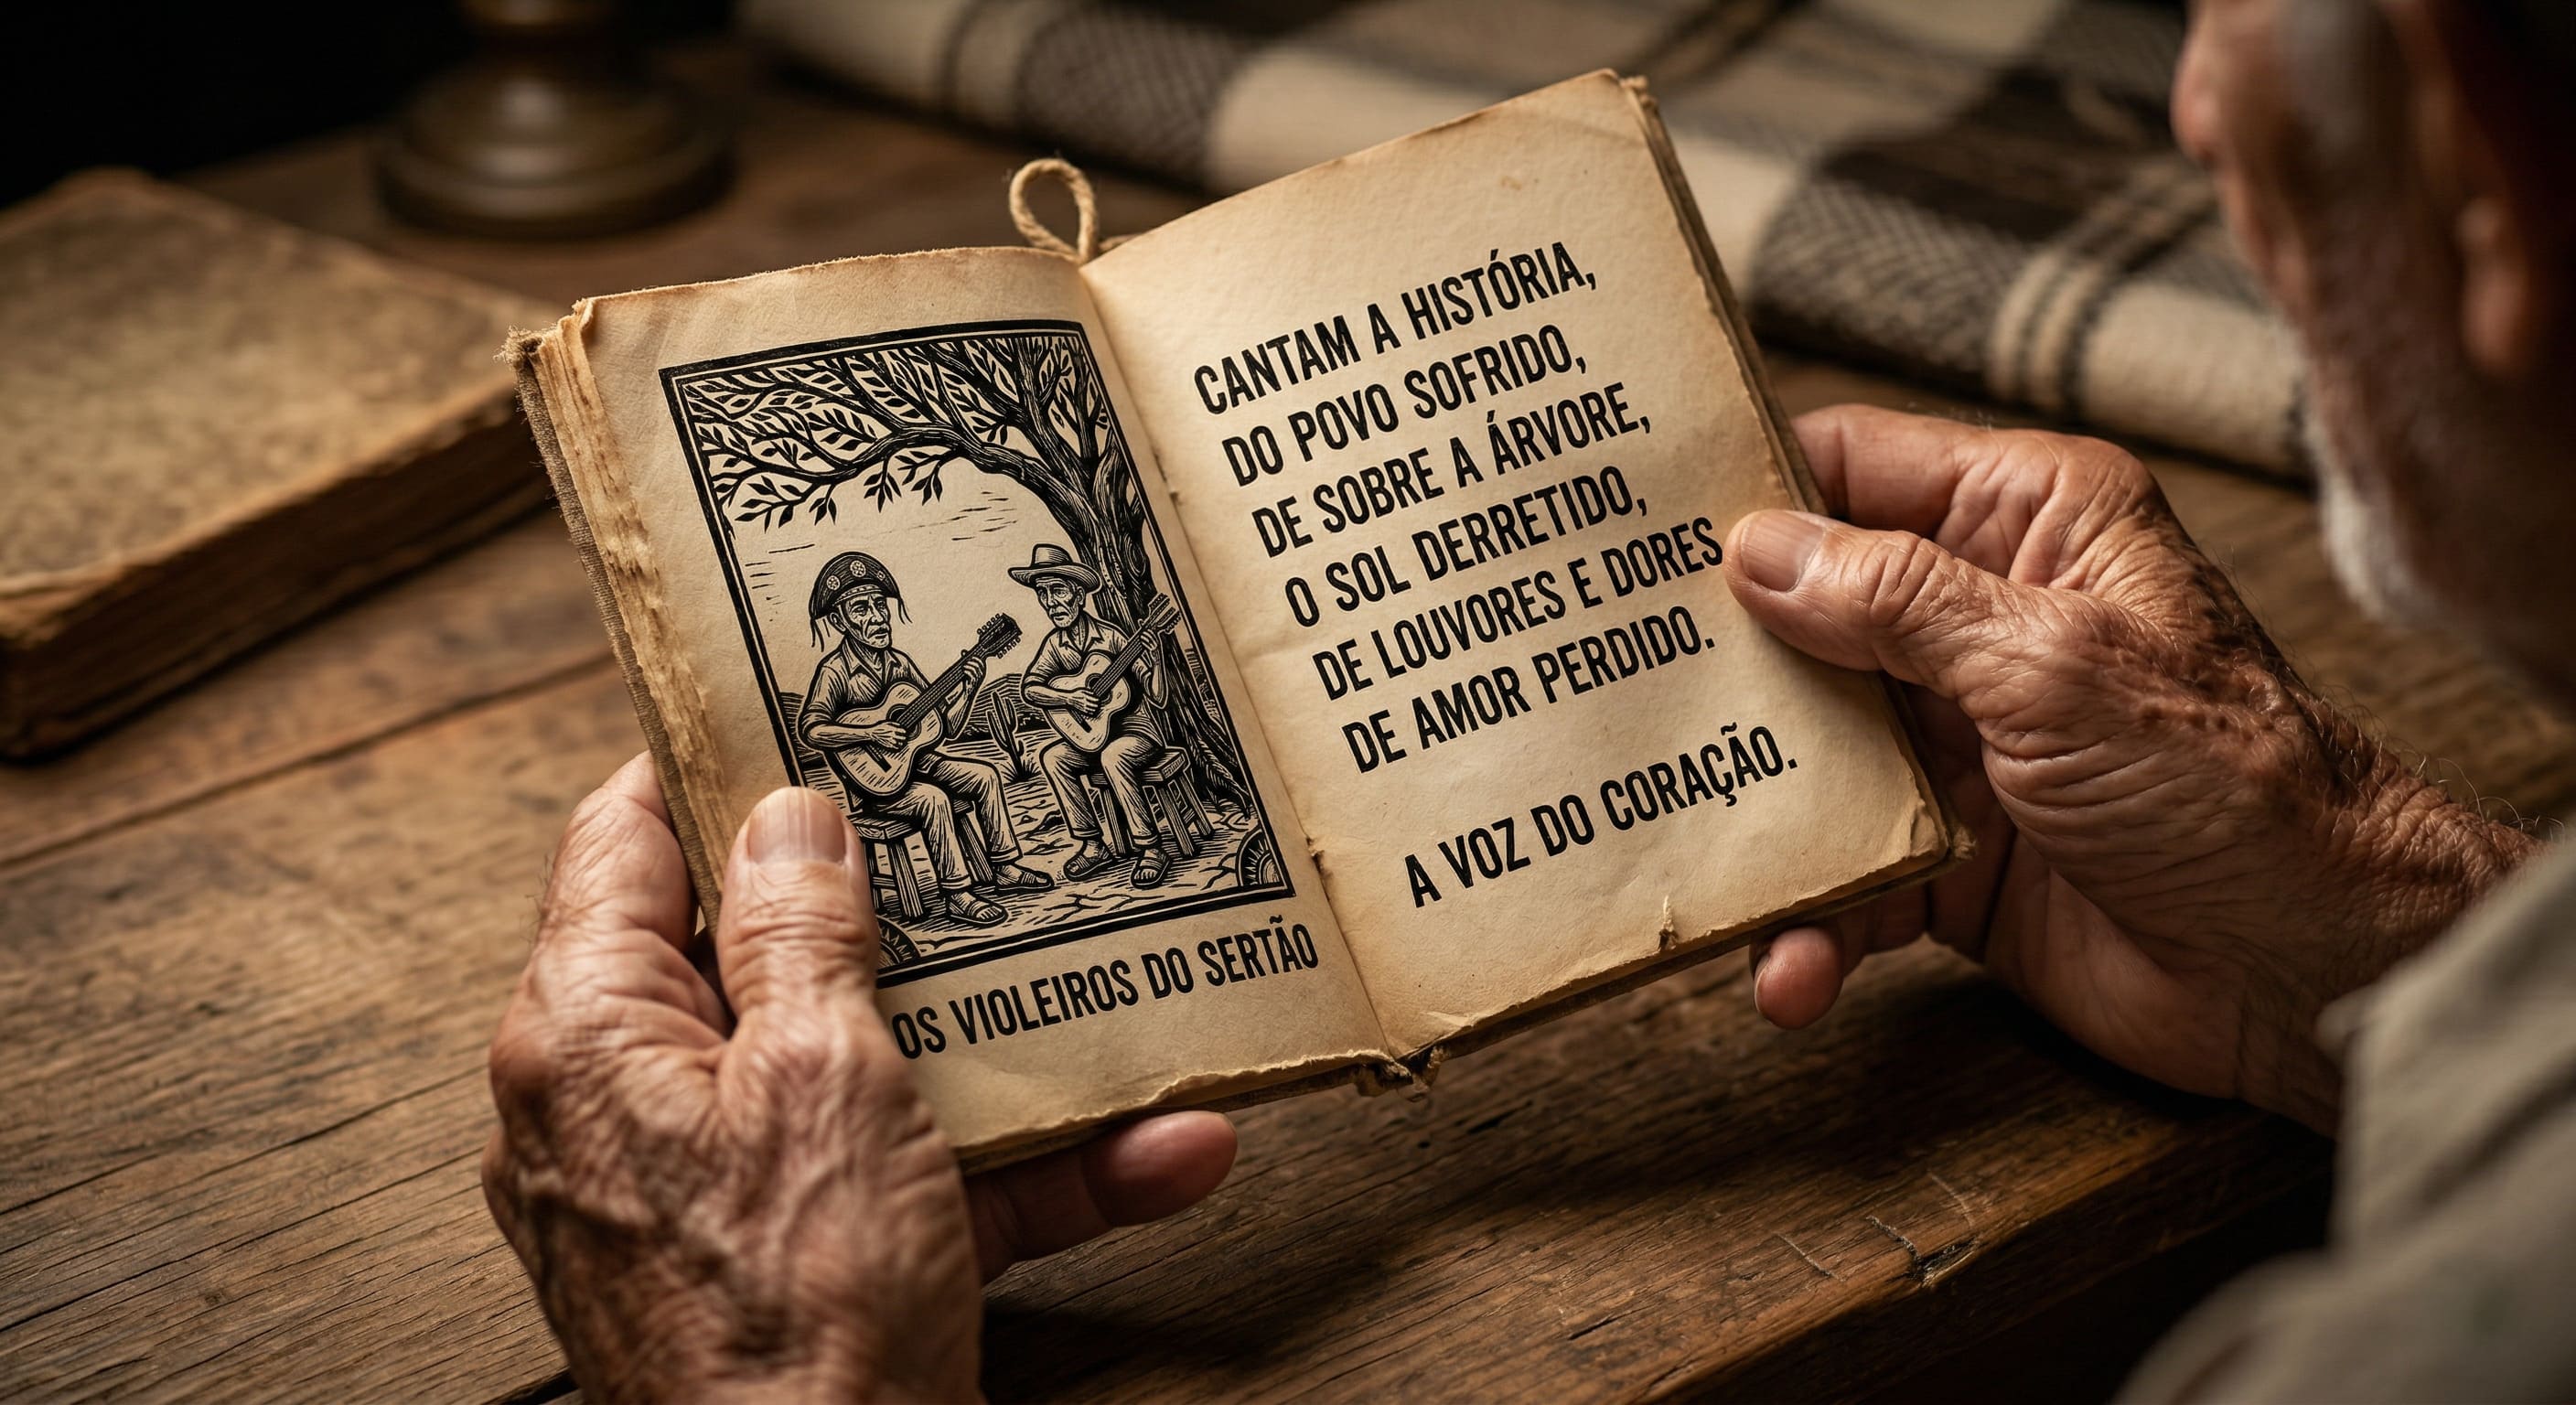 OS VIOLEIROS DO SERTÃO
CANTAM A HISTÓRIA,
DO POVO SOFRIDO,
DE SOBRE A ÁRVORE,
O SOL DERRETIDO,
DE LOUVORES E DORES
DE AMOR PERDIDO.
A VOZ DO CORAÇÃO.